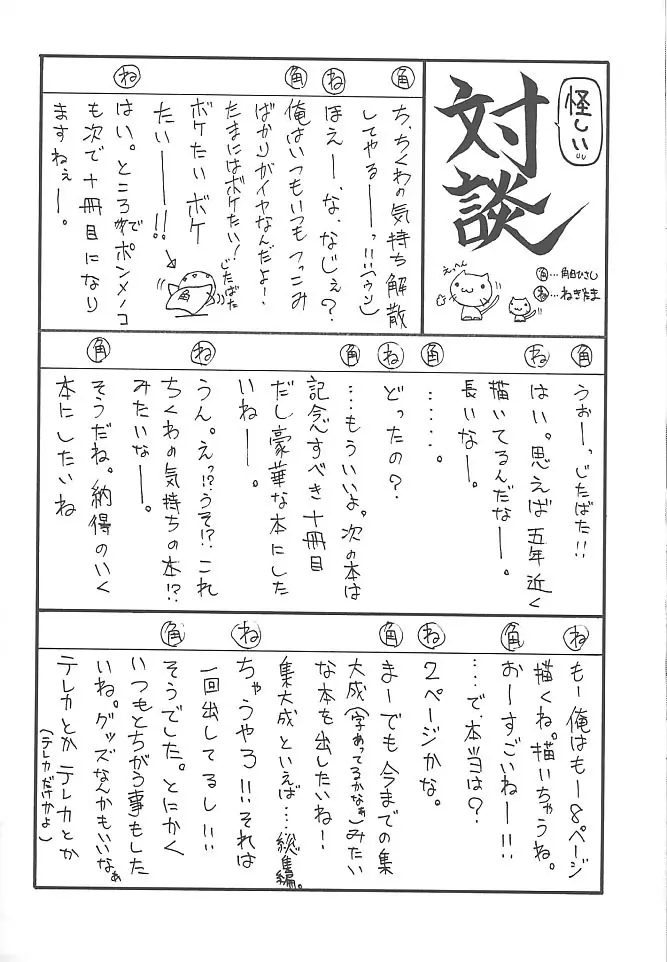 怪しい
対談
えっへん
角…角日ひさし
ね…ねぎたま
角
ち、ちくわの気持ち解散
してやるーっ!!(ウソ)
ね
ほえー、な、なじぇ?
角
俺はいつもいつもつっこみ
ばかりがイヤなんだよ!
たまにはボケたい!
ボケたいボケ
たいー!!
じたばた
角
ね
はい。ところでポンメノコ
も次で十冊目になり
ますねぇー。
角
うぉーっじたばた!!
ね
はい。思えば五年近く
描いてるんだなー。
長いなー。
角
……。
ね
どったの?
角
…もういいよ。次の本は
記念すべき十冊目
だし豪華な本にした
いねー。
ね
うん。えっ!?うそ!?これ
ちくわの気持ちの本!?
みたいなー。
角
そうだね。納得のいく
本にしたいね
ね
もー俺はもー8ページ
描くね。描いちゃうね。
角
おーすごいねー!!
…で、本当は?
ね
2ページかな。
角
まーでも今までの集
大成(字あってるかなぁ)みたい
な本を出したいね!
集大成といえば…総集編。
ね
ちゃうやろ!!それは
一回出してるし!!
角
そうでした。とにかく
いつもとちがう事もした
いね。グッズなんかもいいなぁ
テレカとかテレカとか
(テレカだけかよ)